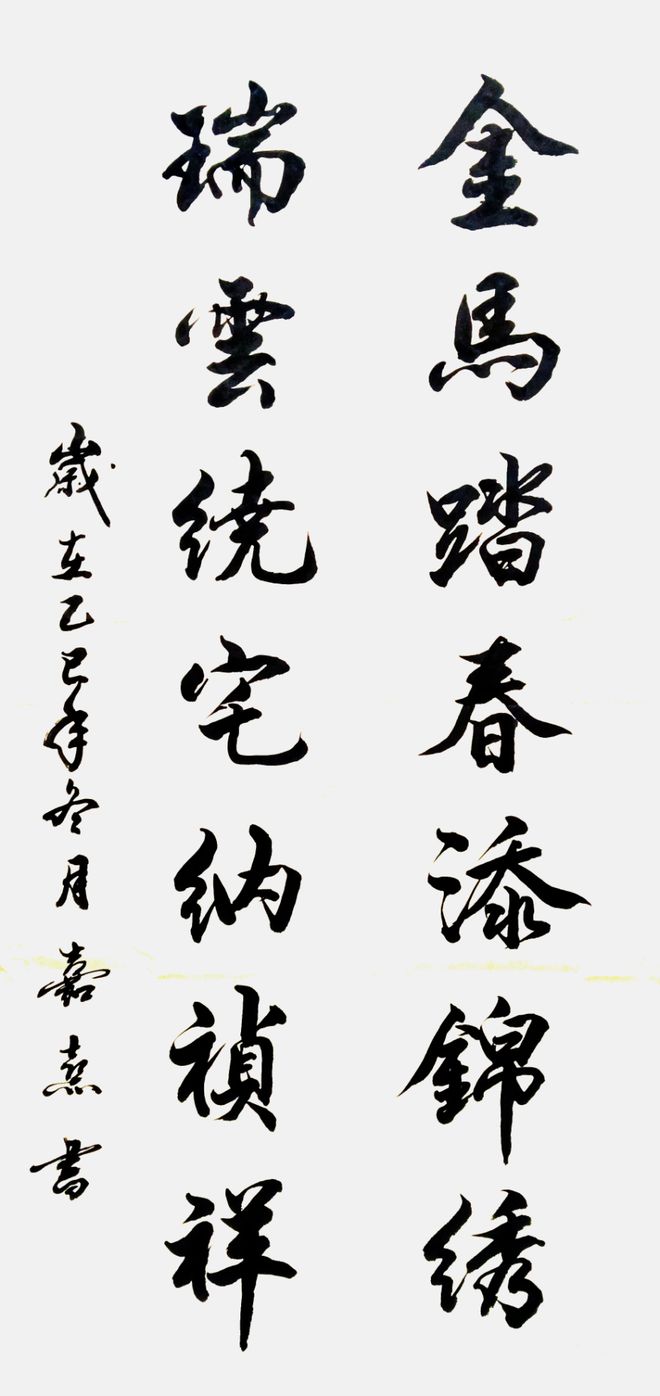 金馬踏春添錦綉
瑞雲繞宅納禎祥
歲在乙巳年冬月嘉熹書